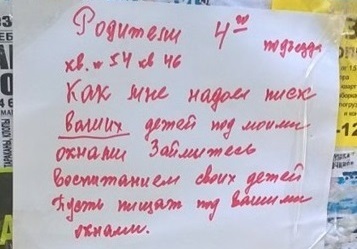 Родители 4го подъезда
кв. № 54 кв 46
Как мне надоел писк
ваших детей под моими
окнами Займитесь
воспитанием своих детей
Пусть пищат под вашими
окнами.